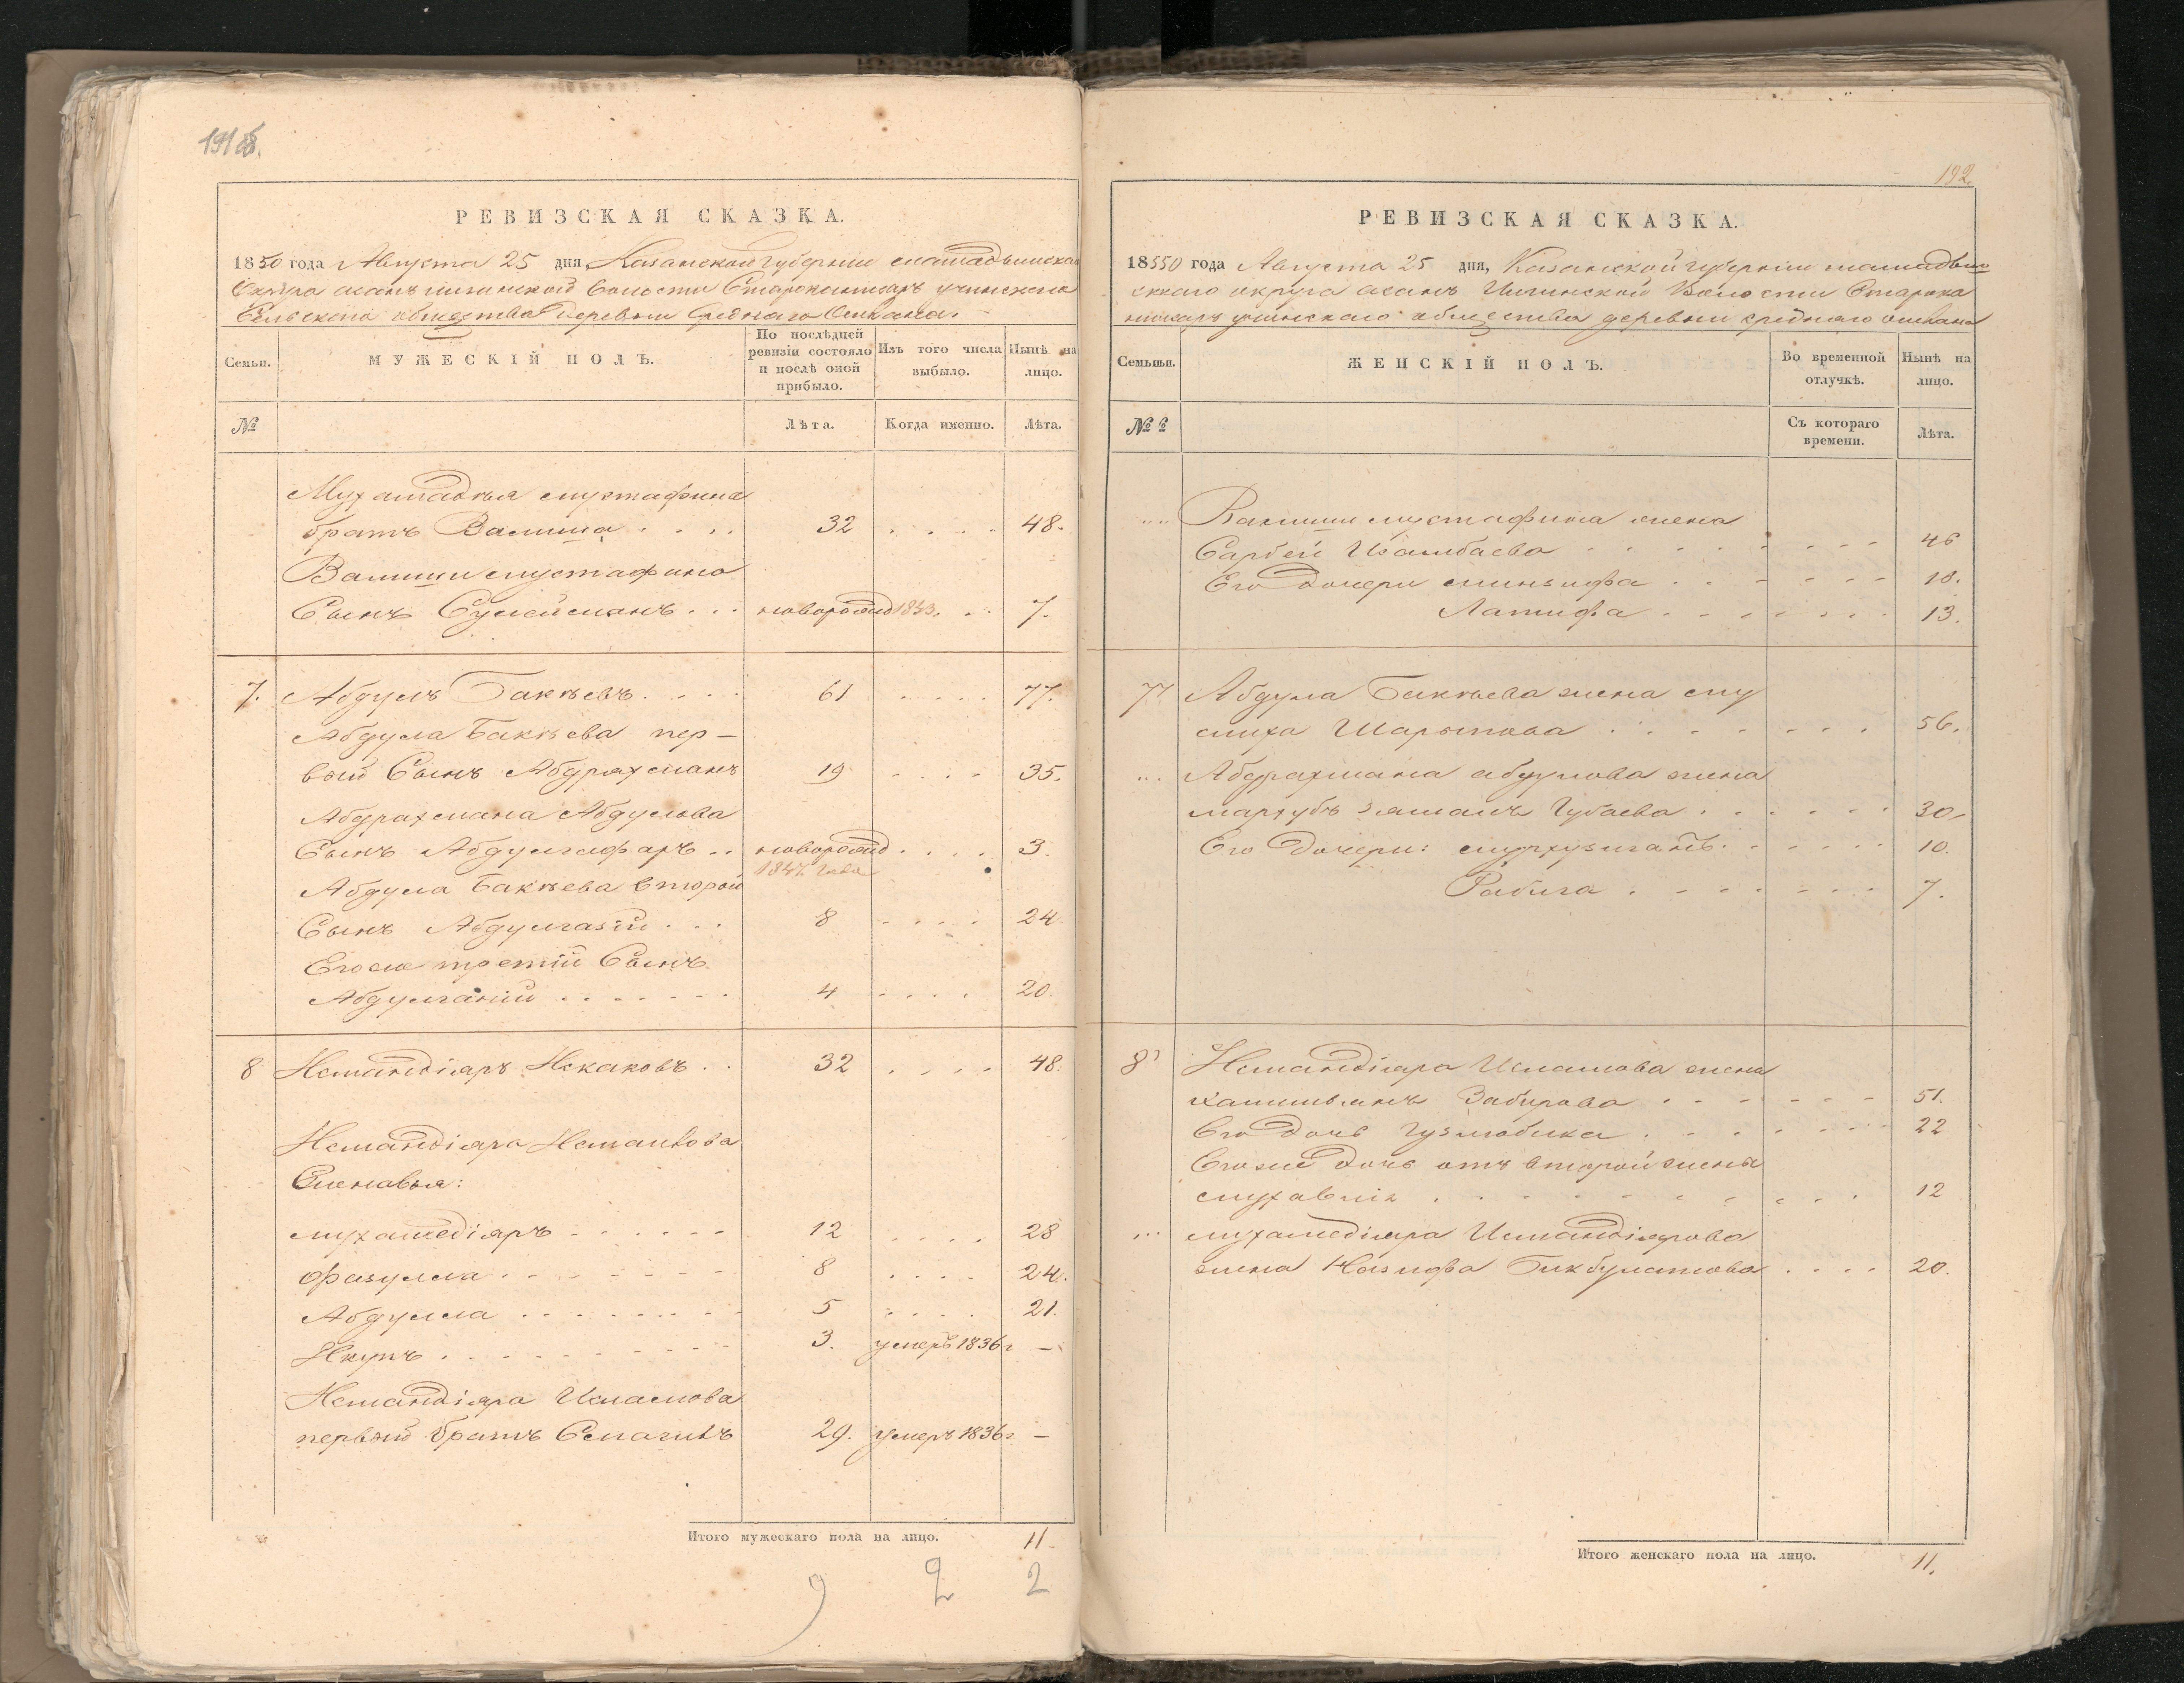 191 об.
РЕВИЗСКАЯ СКАЗКА.
1850 года Августа 25 дня, Казанской Губернии мамадышскаго
Округа волости
Сельскаго общества деревни Средняго
Семьи.
МУЖЕСКІЙ ПОЛЪ.
По послѣдней ревизіи состояло и послѣ оной прибыло.
Изъ того числа выбыло.
Нынѣ на лицо.
№
Лѣта.
Когда именно.
Лѣта.
Мухамадѣя мустафина
братъ Валиша 32 48.
Валиши мустафина
Сынъ Сулейманъ новорожд 1843. 7.
7. Абдулъ Бакѣевъ 61 77.
Абдула Бакѣева пер-
вый Сынъ Абдрахманъ 19 35.
Абдрахмана Абдулова
Сынъ Абдулгафаръ новорожд 3.
1847 года
Абдула Бакѣева второй
Сынъ Абдулгазій 8 24
Егоже третій Сынъ
Абдулганій 4 20.
8 Исмандіяръ 32 48.
Исмандіяра
Сыновья:
мухамедіяръ 12 28
Фазулла 8 24.
Абдулла 5 21.
Якупъ 3. умеръ 1836 г —
Исмандіяра Исламова
первый братъ Смагилъ 29. умеръ 1836 г —
Итого мужескаго пола на лицо. 11.
9 2 2
192.
РЕВИЗСКАЯ СКАЗКА.
1850 года Августа 25 дня, Казанской губерніи мамадыш
скаго округа Волости
общества деревни средняго
Семьи.
ЖЕНСКІЙ ПОЛЪ.
Во временной отлучкѣ.
Нынѣ на лицо.
№
Съ котораго времени.
Лѣта.
Валиши мустафина жена
Сарбей 46
Его дочери 18.
Латифа 13.
7 Абдула Бакѣева жена му
слиха Шарыпова 56.
Абдрахмана абдулова жена
Губаева 30.
Его Дочери: 10.
Рабига 7.
8 Исмандіяра Исламова жена
Забирова 51.
Его дочь 22
Егоже дочь отъ второй жены
12
мухамедіяра Исмандіярова
жена Назифа Бикбулатова 20.
Итого женскаго пола на лицо. 11.